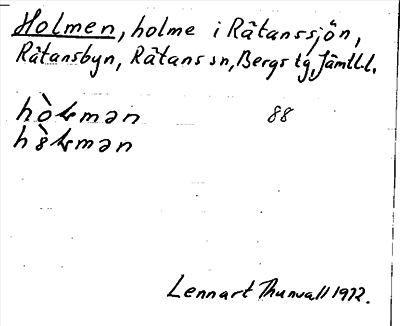 Holmen, holme i Rätanssjön,
Rätansbyn, Rätans sn, Bergs tg, Jämtl. l.
hò mən 88
h mən
Lennart Thunvall 1972.